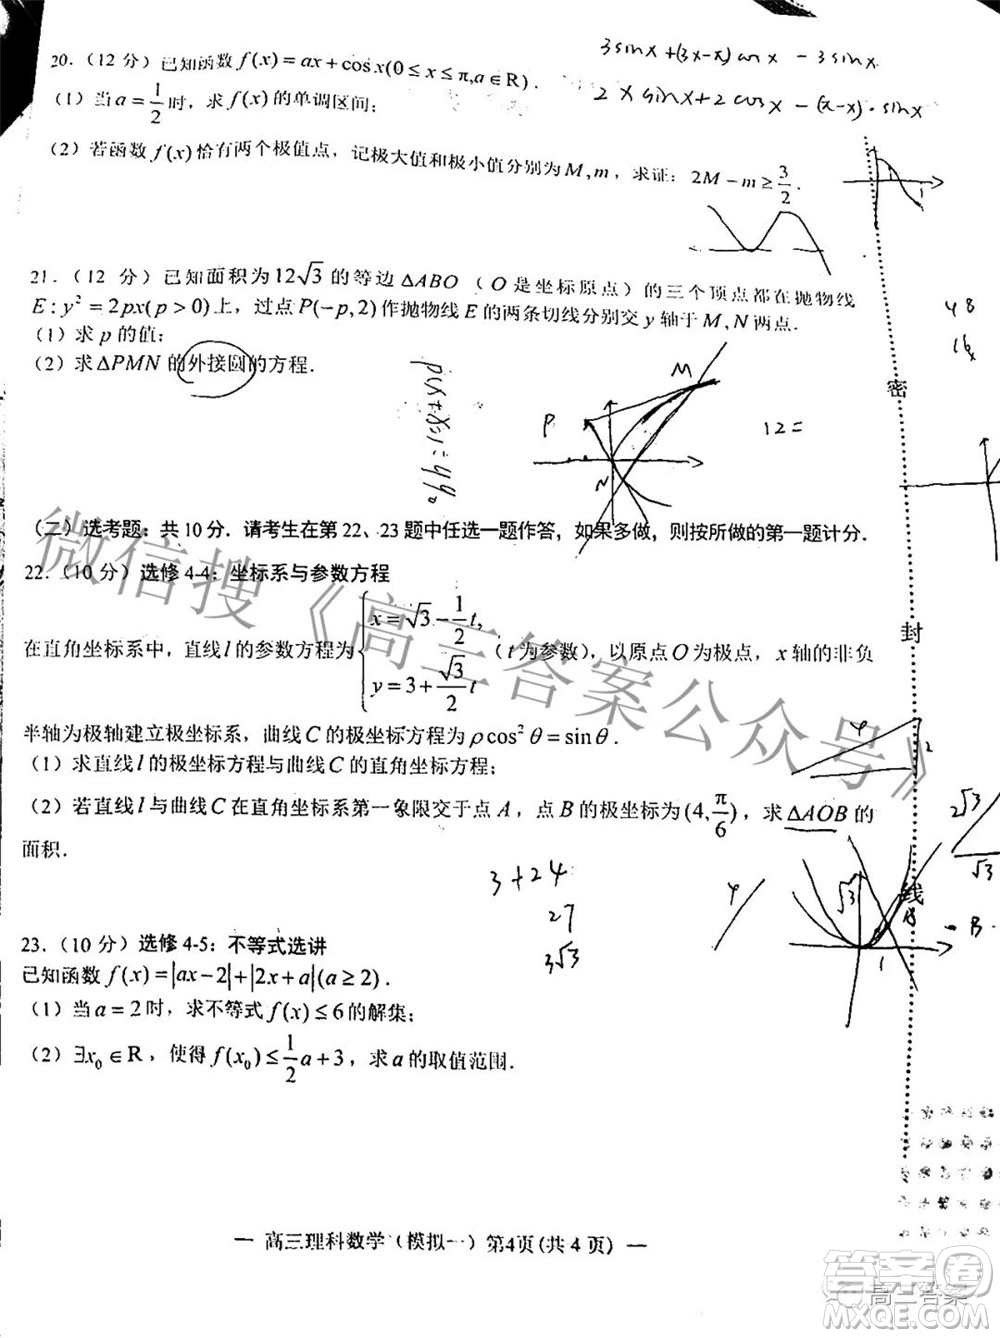 20.（12 分）已知函数 f(x)=ax+cosx(0≤x≤π,a∈R).
3sinx+(3x-π)cosx-3sinx
(1) 当 a=1/2 时，求 f(x) 的单调区间；
2xsinx+2cosx-(π-x)·sinx
(2) 若函数 f(x) 恰有两个极值点，记极大值和极小值分别为 M,m，求证：2M-m≥3/2.
21.（12 分）已知面积为 12√3 的等边 ΔABO（O 是坐标原点）的三个顶点都在抛物线
E:y²=2px(p>0)上，过点 P(-p,2)作抛物线 E 的两条切线分别交 y 轴于 M,N 两点.
(1) 求 p 的值；
(2) 求 ΔPMN 的外接圆的方程.
48
16
M
P
N
12=
密
(二) 选考题：共 10 分．请考生在第 22、23 题中任选一题作答，如果多做，则按所做的第一题计分．
22.（10 分）选修 4-4：坐标系与参数方程
在直角坐标系中，直线 l 的参数方程为{x=√3-1/2t, y=3+√3/2t（t 为参数），以原点 O 为极点，x 轴的非负
封
半轴为极轴建立极坐标系，曲线 C 的极坐标方程为 ρcos²θ=sinθ．
(1) 求直线 l 的极坐标方程与曲线 C 的直角坐标方程；
(2) 若直线 l 与曲线 C 在直角坐标系第一象限交于点 A，点 B 的极坐标为 (4,π/6)，求 ΔAOB 的
面积．
2
2√3
√3
3+24
27
3√3
√3
线
B
1
23.（10 分）选修 4-5：不等式选讲
已知函数 f(x)=|ax-2|+|2x+a|(a≥2)．
(1) 当 a=2 时，求不等式 f(x)≤6 的解集；
(2) ∃x₀∈R，使得 f(x₀)≤1/2a+3，求 a 的取值范围．
微信搜《高三答案公众号》
— 高三理科数学（模拟一）第4页(共 4 页) —
答案圈
高三答案
MXQE.COM